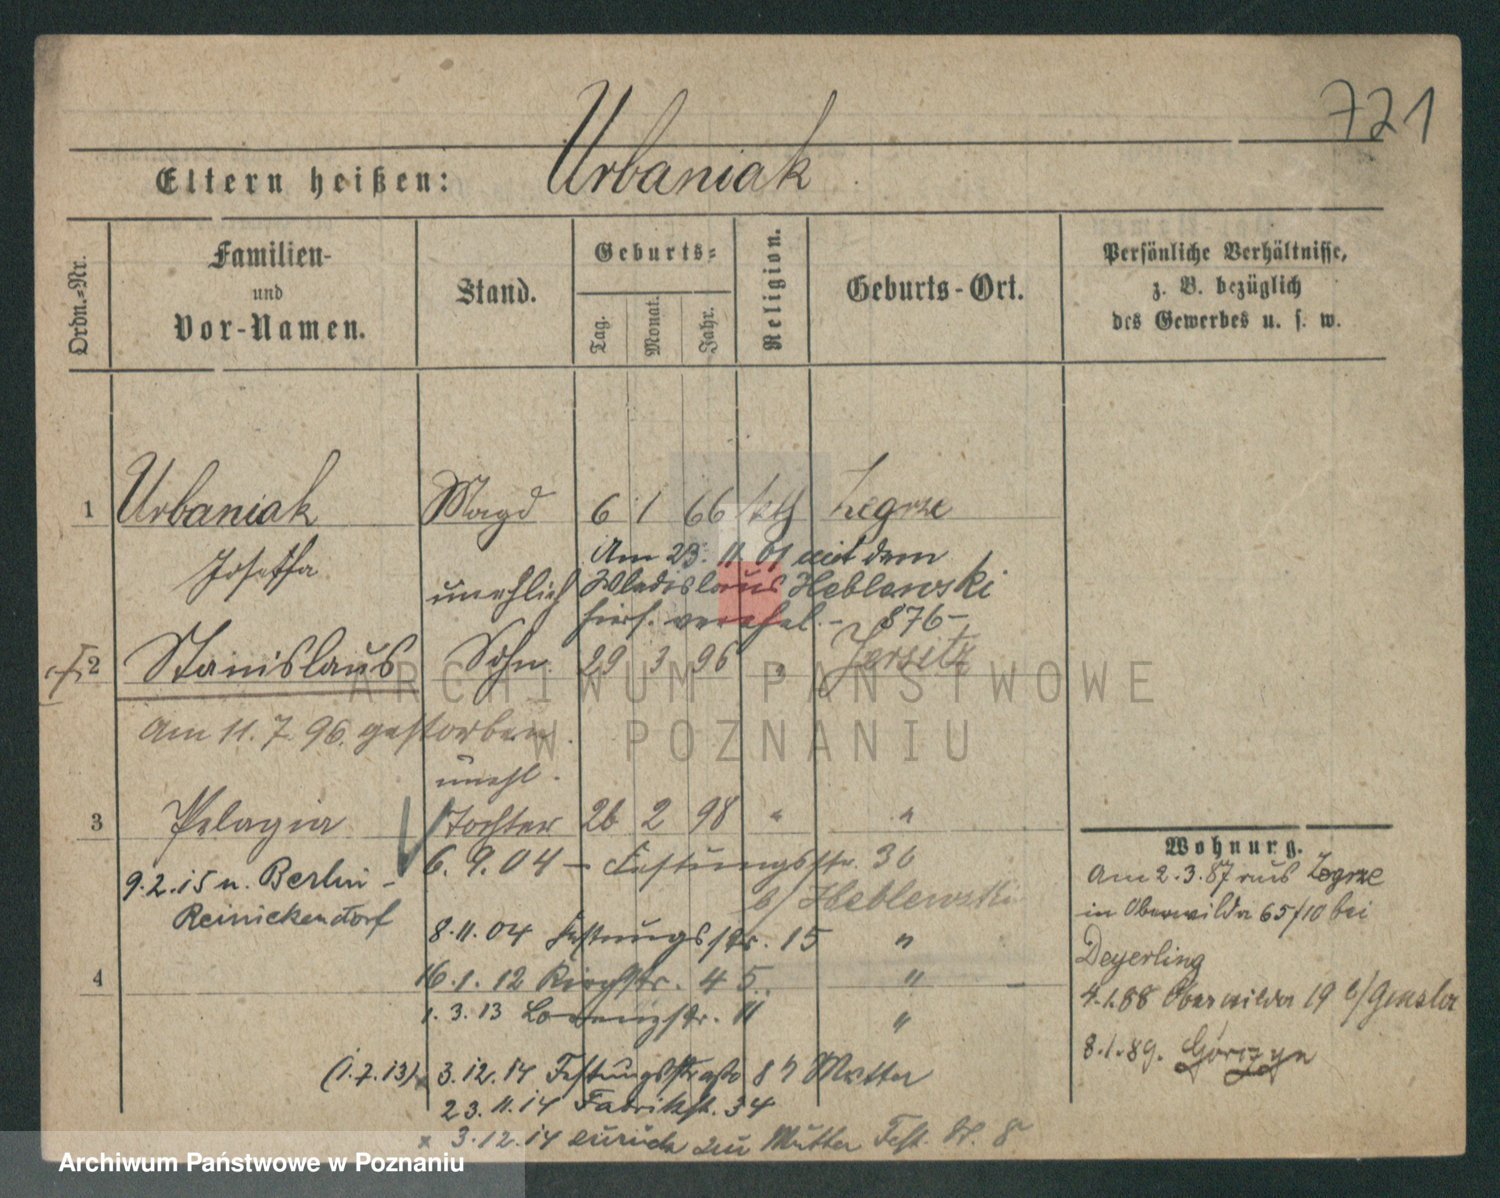 721
Eltern heißen: Urbaniak
Ordn.-Nr.
Familien-
und
Vor-Namen.
Stand.
Geburts-
Tag.
Monat.
Jahr.
Religion.
Geburts-Ort.
Persönliche Verhältnisse,
z. B. bezüglich
des Gewerbes u. s. w.
1 Urbaniak Magd 6 1 66 kth Zegrze
Josefa
Am 23. 11 01 mit dem
unehlich Wladislaus Heblewski
hies. verehel. - 876-
2 Stanislaus Sohn 29 3 96 " Jersitz
Am 11. 7. 96. gestorben.
unehl.
3 Pelagia Tochter 26 2 98 " "
6. 9. 04 - Festungsstr. 36
b/ Heblewski
9.2.15 n. Berlin-
Reinickendorf
8. 11. 04 Festungsstr. 15 "
4
16. 1. 12 Kirchstr. 45. "
1. 3. 13 Lorenzstr. 11 "
(1.7.13) x 3.12.14 Festungsstraße 8 Mutter
23. 11. 14 Fabrikst. 34
x 3.12.14 zurück zu Mutter Fest. St. 8
Wohnung.
Am 2. 3. 87 aus Zegrze
in Oberwilda 65/10 bei
Deyerling
4.1.88 Oberwilda 19 b/ Gensler
8.1.89. Gorczyn
ARCHIWUM PAŃSTWOWE
W POZNANIU
Archiwum Państwowe w Poznaniu